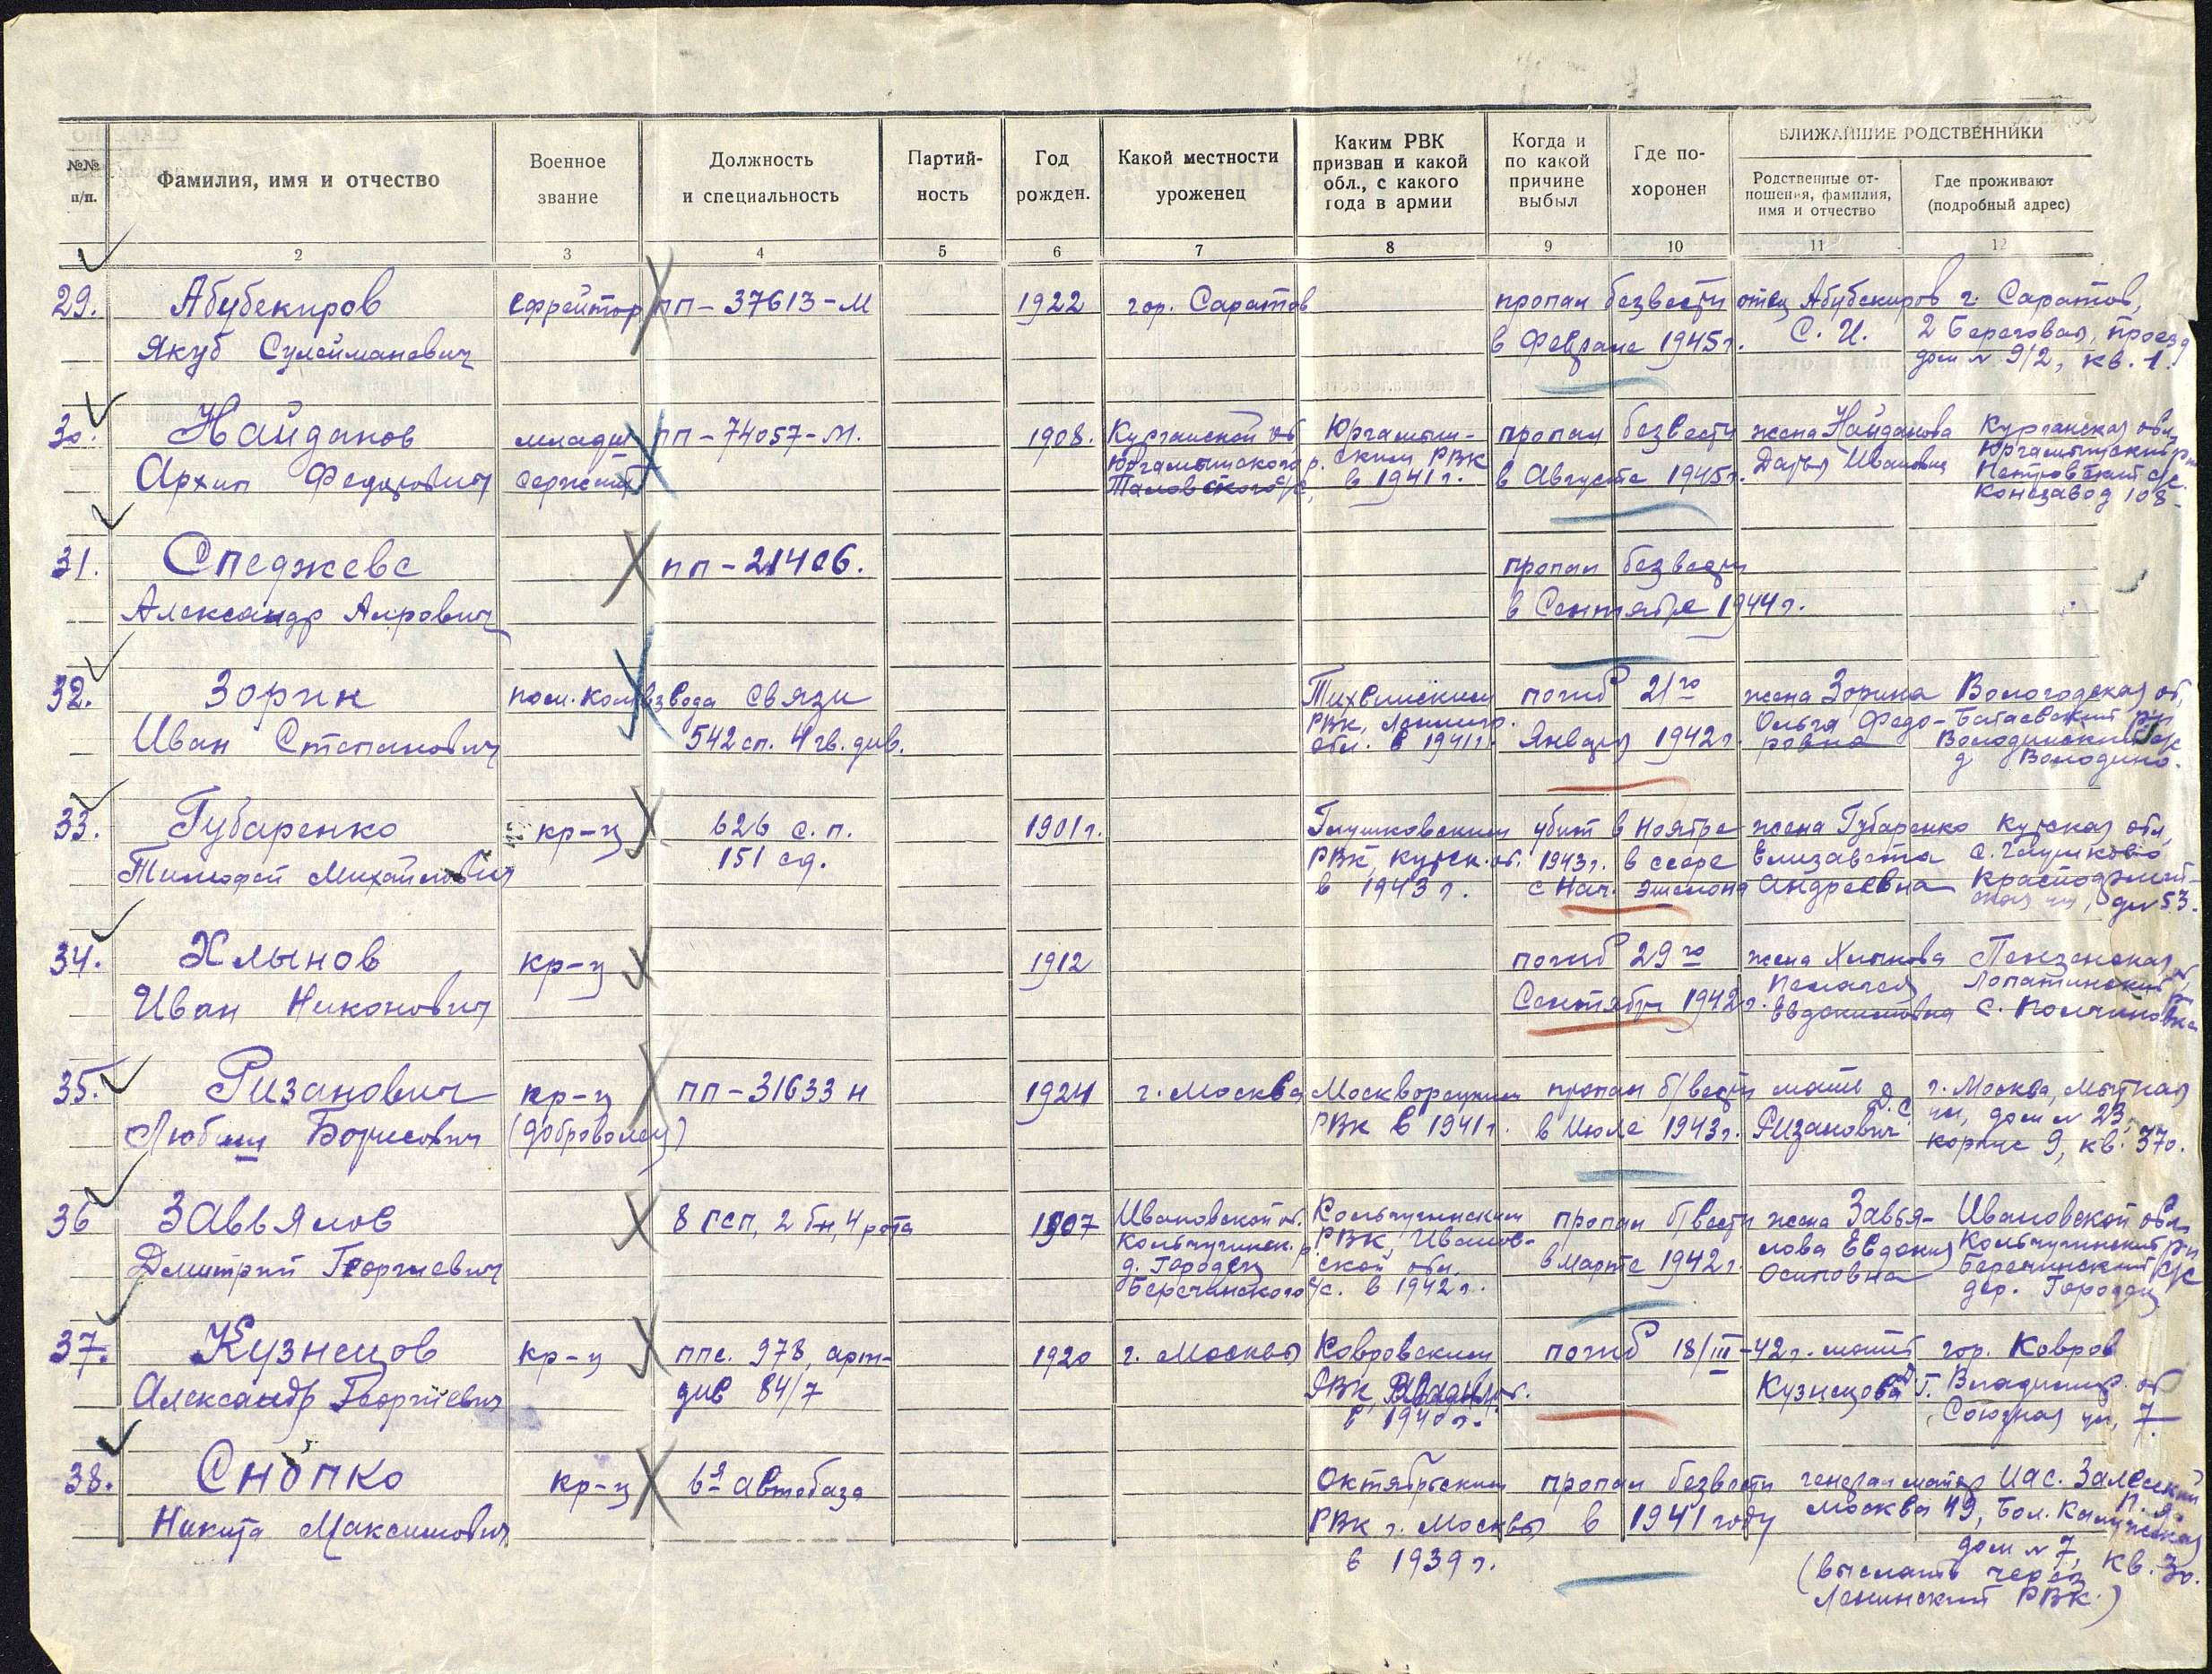 №№ п/п.
Фамилия, имя и отчество
Военное звание
Должность и специальность
Партий-
ность
Год рожден.
Какой местности уроженец
Каким РВК призван и какой обл., с какого года в армии
Когда и по какой причине выбыл
Где по-
хоронен
БЛИЖАЙШИЕ РОДСТВЕННИКИ
Родственные от-
ношения, фамилия, имя и отчество
Где проживают (подробный адрес)
2 3 4 5 6 7 8 9 10 11 12
29. Абубекиров ефрейтор пп-37613-М 1922 гор. Саратов пропал безвести отец Абубекиров г. Саратов,
Якуб Сулейманович в Феврале 1945г. С. И. 2 Береговая, проезд
дом № 9/2, кв. 1.
30. Найданов младш пп-74057-М. 1908. Курганской об Юргамыш- пропал безвести жена Найданова Курганская обл,
Юргамышского р. ским РВК Юргамышский
Архип Федорович сержант Таловского с/с, в 1941г. в Августе 1945г. Дарья Ивановна Петровский с/с.
конезавод 108
31. Спеджевс пп-21406. пропал безвести
Александр в Сентябре 1944г.
32. Зорин пом. ком взвода связи Тихвинским погиб 21го жена Зорина Вологодская об,
Иван Степанович 542 сп. 4 гв. див. РВК, Ленингр. обл. в 1941г. Января 1942г. Ольга Федо-
ровна
Володинский с/с
д Володино.
33. Губаренко кр-ц 626 с.п. 1901г. Глушковским убит в ноябре жена Губаренко Курская обл,
Тимофей Михайлович 151 сд. РВК, Курск. об. 1943г. в сборе Елизавета с. Глушково
в 1943г. с Нач. эшелона Андреевна Красноармей-
ская ул, дом 53.
34. Хлынов кр-ц 1912 погиб 29го жена Хлынова Пензенская
Иван Никонович Сентября 1942г. Пелагея Лопатинский
Евдокимовна с.
35. Ризанович кр-ц пп-31633 н 1924 г. Москва Москворецким пропал б/вести мать Д.С. г. Москва, Мытная
Любиш Борисович (доброволец) РВК в 1941г. в Июле 1943г. Ризанович ул, дом № 23,
корпус 9, кв. 370.
36 Завьялов 8 гсп, 2 бн, 4 рота 1907 Ивановской об. Кольчугинским пропал б/вести жена Завья- Ивановской обл,
Кольчугинск. р. РВК, Иванов- Кольчугинский р-н
Дмитрий Георгиевич д. Городец ской обл. в Марте 1942г. лова Евдокия
Беречинского с/с. в 1942г. Осиповна Беречинский с/с
дер. Городец
37. Кузнецов кр-ц ппс. 978, арт- 1920 г. Москвы Ковровским погиб 18/III-42г. мать гор. Ковров
Александр Георгиевич див 84/7 РВК, об. Кузнецова Г. Владимир. об
в 1940г. Союзная ул, 7
38. Снопко кр-ц 6-я автобаза Октябрьским пропал безвести генерал майор Иас. Залесский
П.Я.
Никита Максимович РВК г. Москвы в 1941 году Москва 49, Бол. Калужская
в 1939г. дом № 7, кв. 30.
(выслать через
Ленинский РВК.)